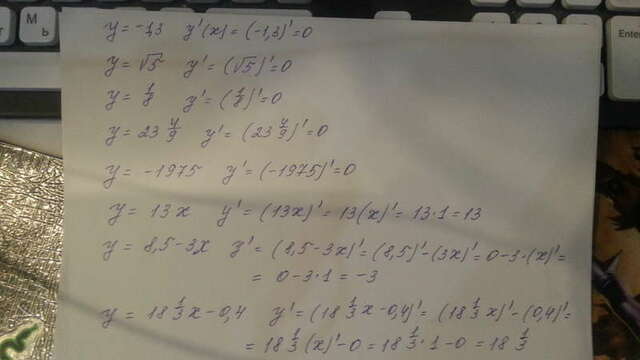 М Ь Enter
y = -1,3 y'(x) = (-1,3)' = 0
y = √5 y' = (√5)' = 0
y = 1/8 y' = (1/8)' = 0
y = 23 4/9 y' = (23 4/9)' = 0
y = -1975 y' = (-1975)' = 0
y = 13x y' = (13x)' = 13(x)' = 13·1 = 13
y = 8,5-3x y' = (8,5-3x)' = (8,5)'-(3x)' = 0-3·(x)' =
= 0-3·1 = -3
y = 18 1/3 x - 0,4 y' = (18 1/3 x - 0,4)' = (18 1/3 x)' - (0,4)' =
= 18 1/3 (x)' - 0 = 18 1/3 · 1 - 0 = 18 1/3